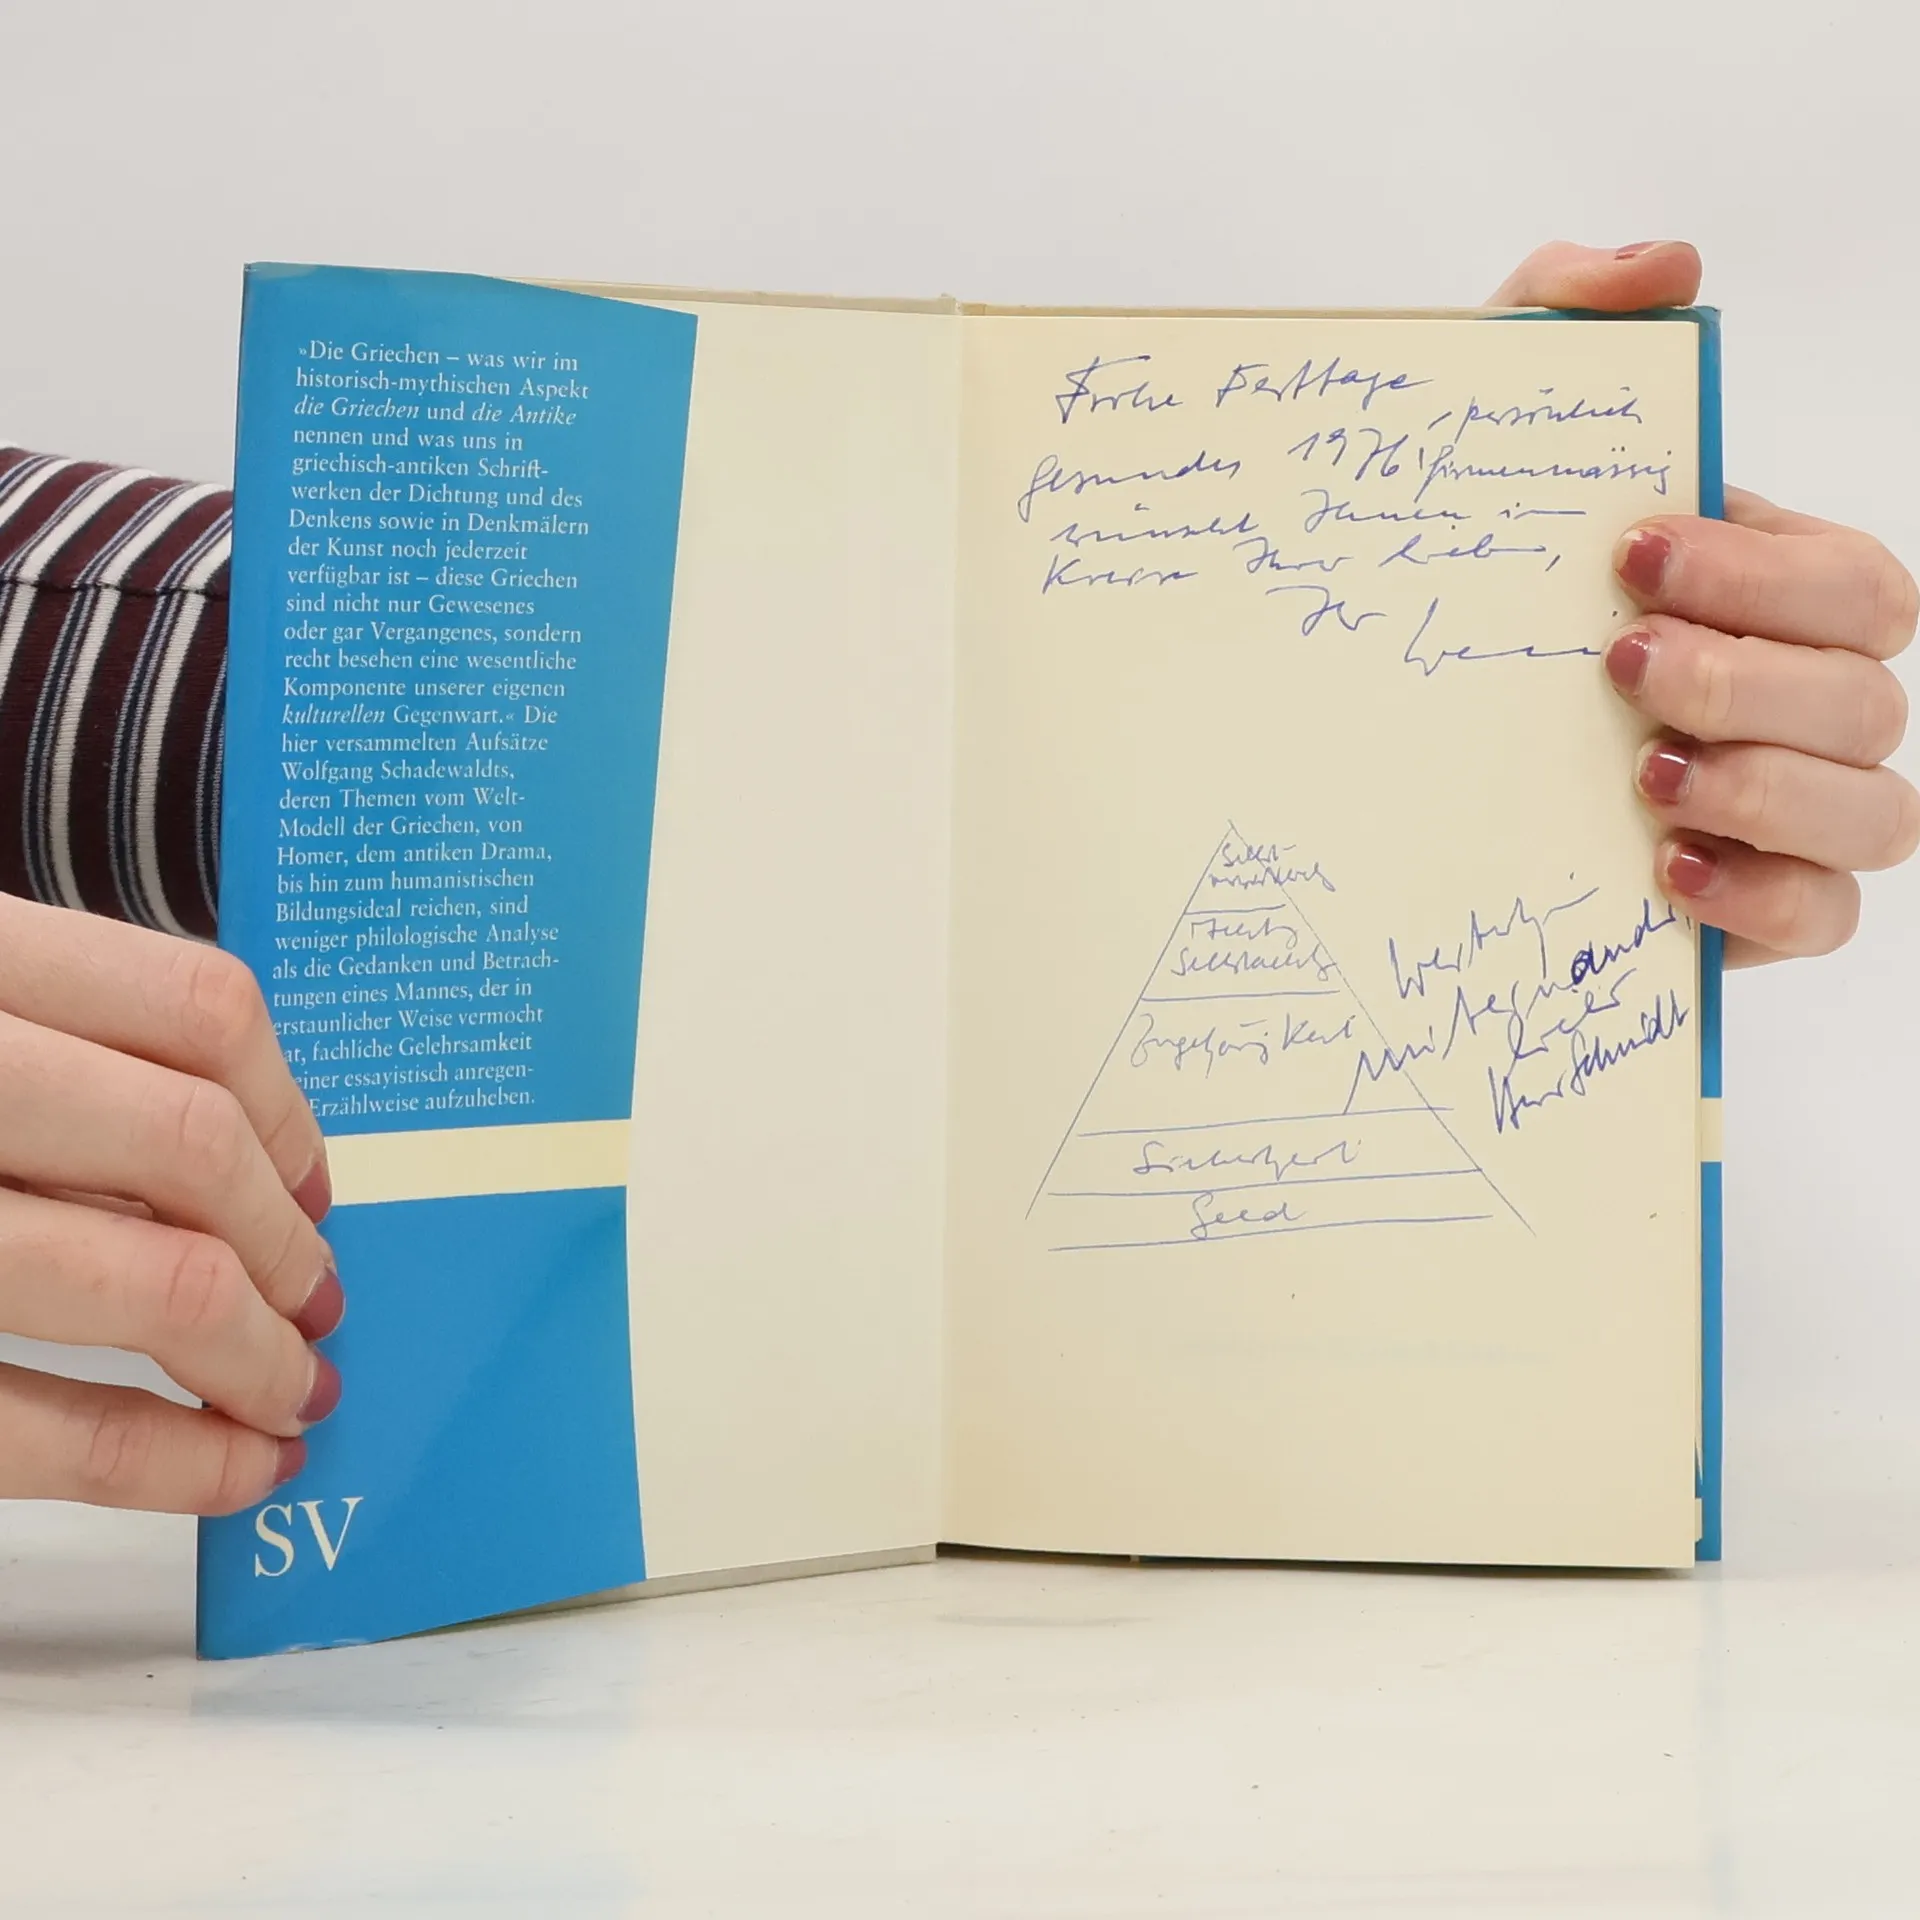 »Die Griechen – was wir im
historisch-mythischen Aspekt
die Griechen und die Antike
nennen und was uns in
griechisch-antiken Schrift-
werken der Dichtung und des
Denkens sowie in Denkmälern
der Kunst noch jederzeit
verfügbar ist – diese Griechen
sind nicht nur Gewesenes
oder gar Vergangenes, sondern
recht besehen eine wesentliche
Komponente unserer eigenen
kulturellen Gegenwart.« Die
hier versammelten Aufsätze
Wolfgang Schadewaldts,
deren Themen vom Welt-
Modell der Griechen, von
Homer, dem antiken Drama,
bis hin zum humanistischen
Bildungsideal reichen, sind
weniger philologische Analyse
als die Gedanken und Betrach-
tungen eines Mannes, der in
erstaunlicher Weise vermocht
at, fachliche Gelehrsamkeit
einer essayistisch anregen-
Erzählweise aufzuheben.
SV
Frohe Festtage
, persönlich
gesundes 1976! firmenmässig
wünscht Ihnen im
Kreise Ihrer Lieben,
Ihr
Selbst-
Macht,
Zugehörigkeit
Sicherheit
Geld
miteinander,
lieber
Herr Schmidt